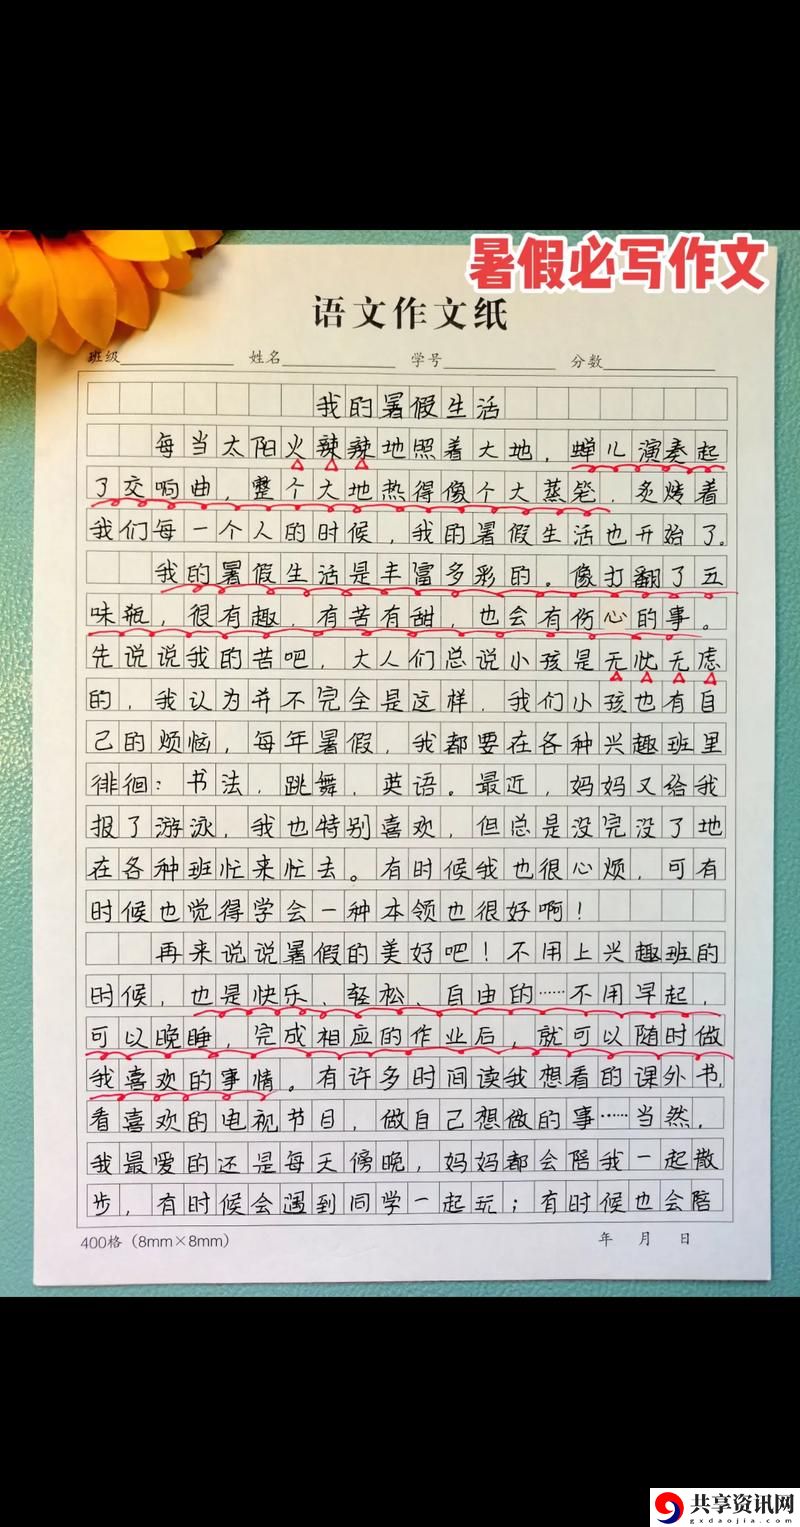 暑假必写作文
语文作文纸
班级 姓名 学号 分数
我的暑假生活
每当太阳火辣辣地照着大地，蝉儿演奏起
了交响曲，整个大地热得像个大蒸笼，炙烤着
我们每一个人的时候，我的暑假生活也开始了。
我的暑假生活是丰富多彩的。像打翻了五
味瓶，很有趣，有苦有甜，也会有伤心的事。
先说说我的苦吧，大人们总说小孩是无忧无虑
的，我认为并不完全是这样，我们小孩也有自
己的烦恼，每年暑假，我都要在各种兴趣班里
徘徊：书法，跳舞，英语。最近，妈妈又给我
报了游泳，我也特别喜欢，但总是没完没了地
在各种班忙来忙去。有时候我也很心烦，可有
时候也觉得学会一种本领也很好啊！
再来说说暑假的美好吧！不用上兴趣班的
时候，也是快乐、轻松、自由的……不用早起，
可以晚睡，完成相应的作业后，就可以随时做
我喜欢的事情。有许多时间读我想看的课外书，
看喜欢的电视节目，做自己想做的事……当然，
我最爱的还是每天傍晚，妈妈都会陪我一起散
步，有时候会遇到同学一起玩；有时候也会陪
400格（8mm×8mm） 年 月 日
共享资讯网
gxdaojia.com